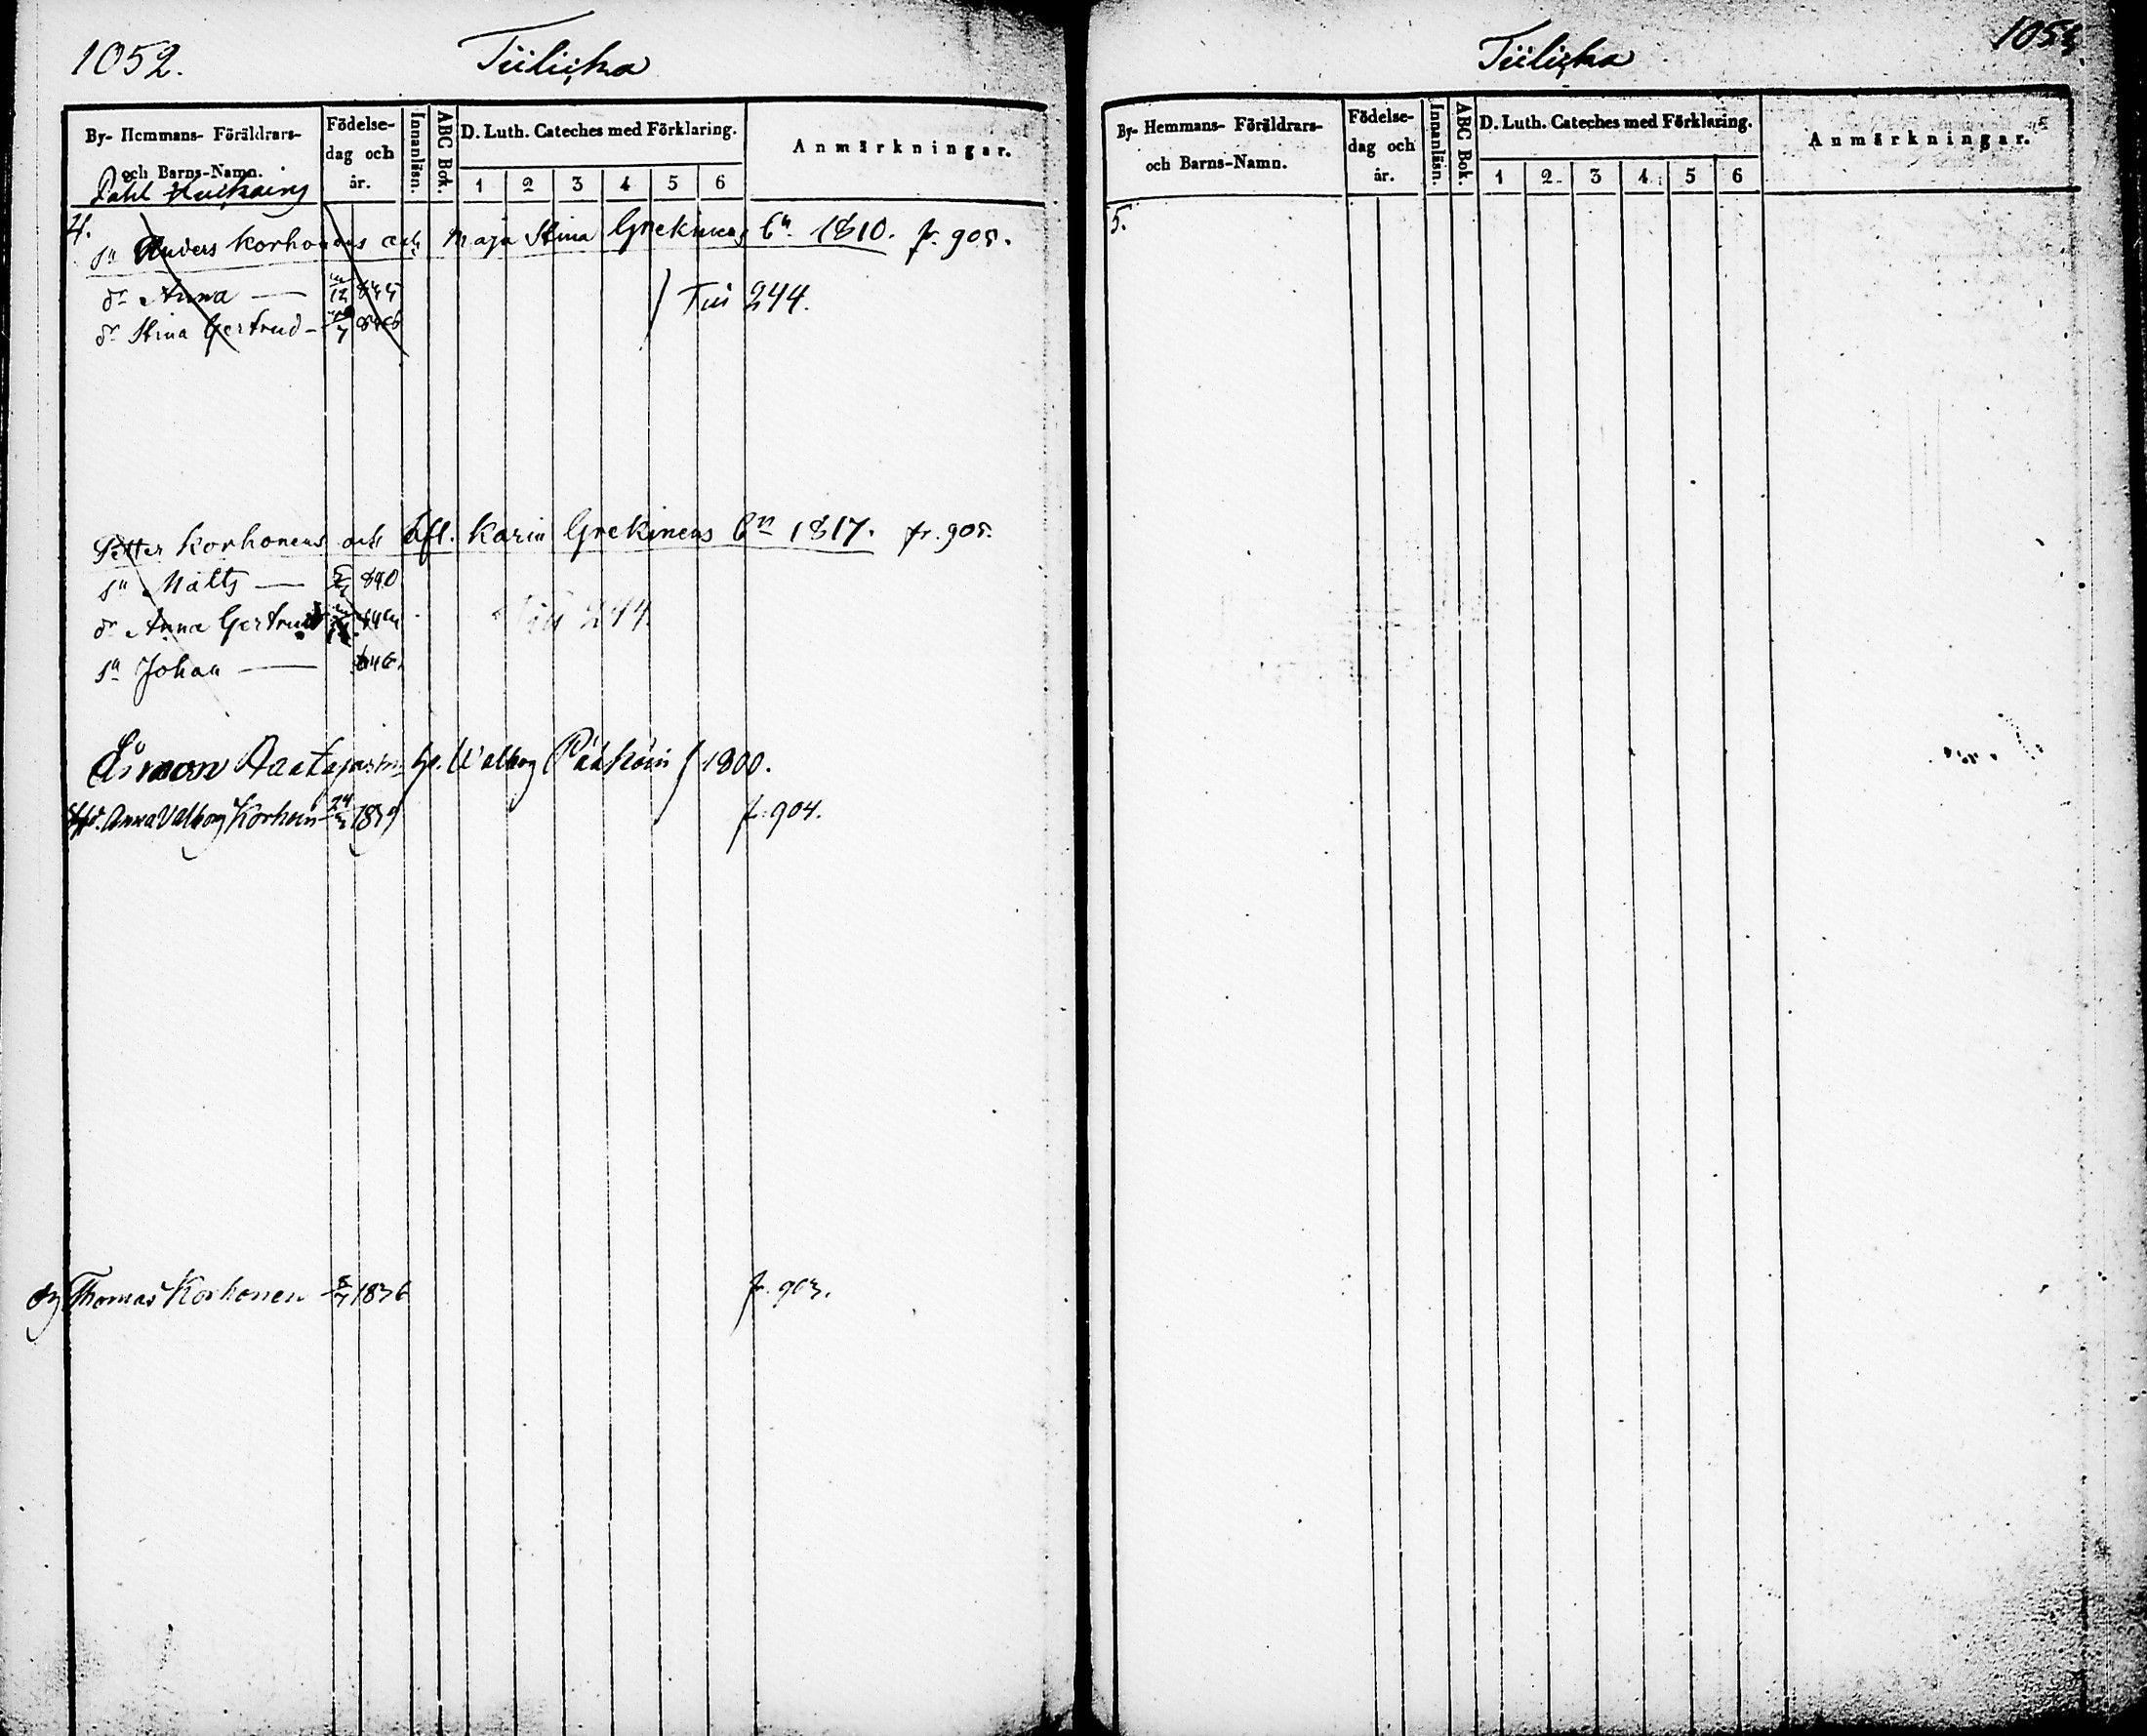 1052.
Tiilicka
By- Hemmans- Föräldrars- och Barns-Namn.
Födelse- dag och år.
Innanläsn.
ABC Bok.
D. Luth. Cateches med Förklaring.
1 2 3 4 5 6
Anmärkningar.
Påhl
4.
sn Anders Korhonens och Maja Stina Grekinens Bn 1810. fr. 905.
dr Anna — 12
dr Stina Gertrud - 7
Fui 244.
Petter Korhonens och hfl. Karin Grekinens Bn 1817. fr. 905.
sn Matts — 840
dr Anna Gertrud 844
244
sn Johan — 846.
Simon h. Walborg 1800.
Anna Valborg Korhoin 24 1839 fr. 904.
Thomas Korhonen 1836 fr. 903.
1053
Tiilicka
By- Hemmans- Föräldrars- och Barns-Namn.
Födelse- dag och år.
Innanläsn.
ABC Bok.
D. Luth. Cateches med Förklaring.
1 2 3 4 5 6
Anmärkningar.
5.